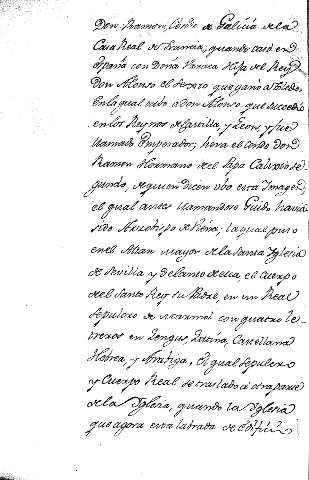 Don Ramon, Conde de Galicia de la
Casa Real de Francia, quando casó en
España con Doña Vrraca Hija del Rey
Don Alonso el Sexto que ganó a Toledo
En la qual ubo a Don Alonso que sucedió
en los Reynos de Castilla, y Leon, y fue
llamado Emperador; hera el Conde Don
Ramon Hermano del Papa Calixto se-
gundo, de quien dicen vbo esta Imagen,
el qual antes llamandose Guido havia
sido Arzobispo de Viena; la qual puso
en el Altar Mayor de la Santa Iglesia
de Sevilla y delante de ella, el Cuerpo
del Santo Rey su Padre, en un Real
Sepulcro de Marmol con quatro le-
treros en Lengua, Latina, Castellana
Hebrea, y Arabiga, El qual Sepulcro
y Cuerpo Real se trasladó a otra parte
de la Iglesia, quando la Iglesia
que agora esta labrada de